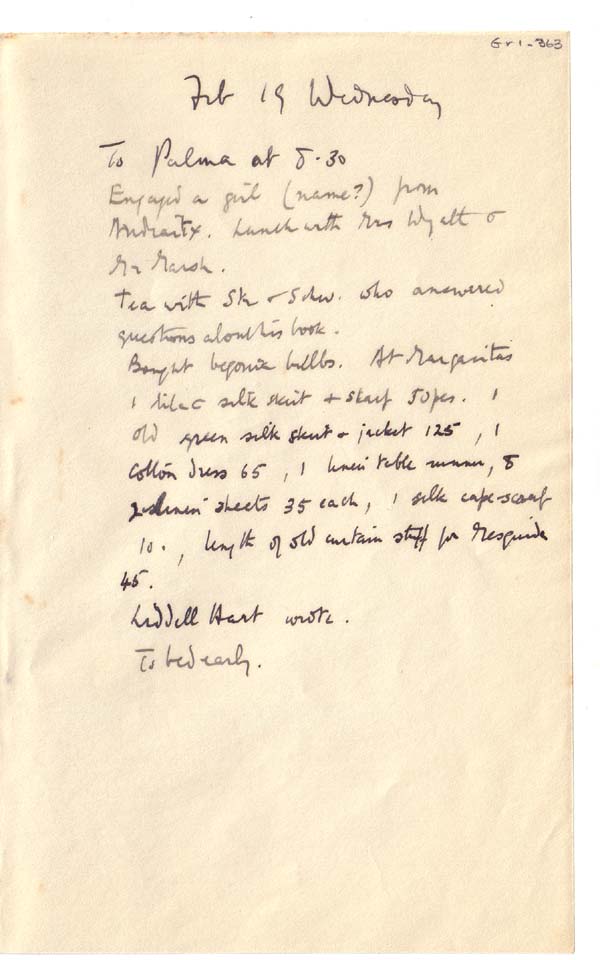 Gr1-363
Feb 19 Wednesday
To Palma at 8.30
Engaged a girl (name?) from
Andraitx. Lunch with Mrs Wyatt &
Mr Marsh.
Tea with Str & Schw. who answered
questions about his book.
Bought begonia bulbs. At Margaritas
1 lilac silk skirt & skarf 50 pes. 1
old green silk skirt & jacket 125, 1
cotton dress 65, 1 linen table runner, 8
linen sheets 35 each, 1 silk cape-scarf
10., length of old curtain stuff for Mesquida
45.
Liddell Hart wrote.
To bed early.